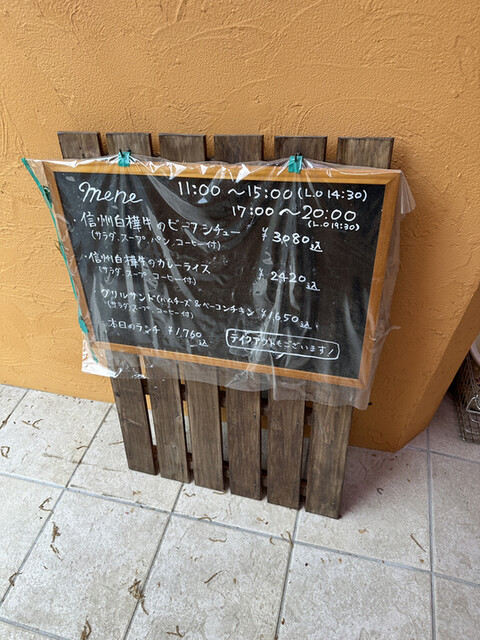 mene 11:00 〜15:00 (L.O 14:30)
17:00 〜 20:00
(L.O 19:30)
・信州白樺牛のビーフシチュー ¥3,080込
(サラダ、スープ、パン、コーヒー付)
・信州白樺牛のカレーライス ¥2420込
(サラダ、スープ、コーヒー付)
・グリルサンド(ハムチーズ&ベーコンチキン ¥1,650込
(サラダ、スープ、コーヒー付)
・本日のランチ ¥1,760込
テイクアウトもございます!